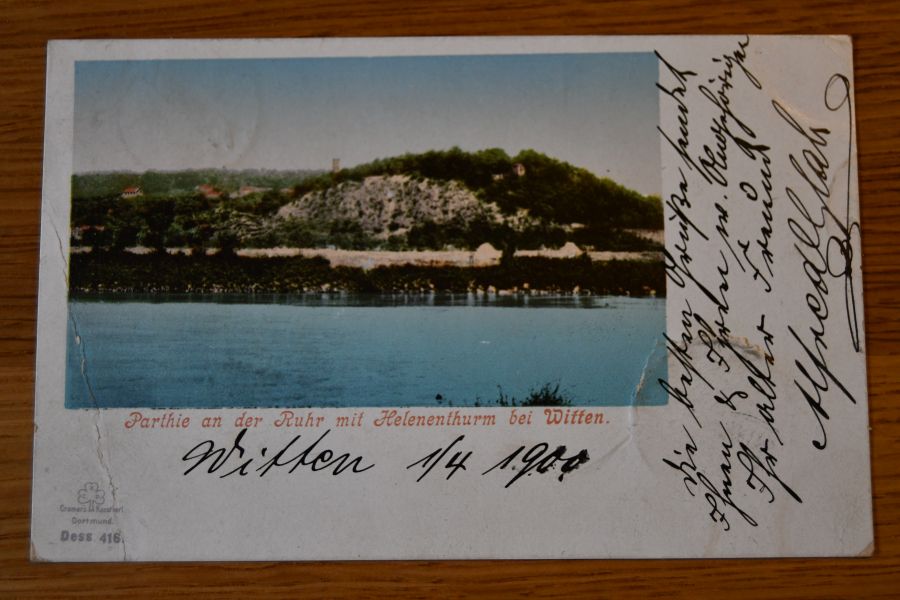 Parthie an der Ruhr mit Helenenthurm bei Witten.
Witten 1/4 1900
Die besten Grüße sendet
Ihnen & Ihren w. Angehörigen
Ihr alter Freund
Alfred
Cramers Kunstverl.
Dortmund.
Dess 416.